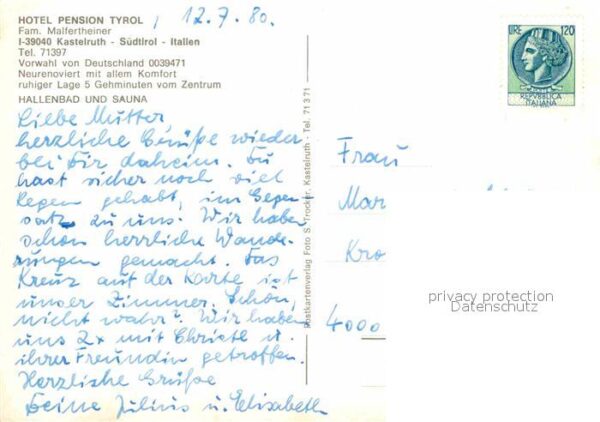 HOTEL PENSION TYROL, 12.7.80.
Fam. Malfertheiner
I-39040 Kastelruth - Südtirol - Italien
Tel. 71397
Vorwahl von Deutschland 0039471
Neurenoviert mit allem Komfort
ruhiger Lage 5 Gehminuten vom Zentrum
HALLENBAD UND SAUNA
Liebe Mutter
herzliche Grüße wieder
bei Dir daheim. Du
hast sicher noch viel
Regen gehabt, im Gegen
satz zu uns. Wir haben
schon herrliche Wande-
rungen gemacht. Das
Kreuz auf der Karte ist
unser Zimmer. Schön,
nicht wahr? Wir haben
uns 2x mit Christle u.
ihrer Freundin getroffen.
Herzliche Grüße
Deine Julius u. Elisabeth
Postkartenverlag Foto S. Trocker, Kastelruth - Tel. 71371
LIRE 120
REPVBBLICA
ITALIANA
Frau
Mar
Kro
4000
privacy protection
Datenschutz